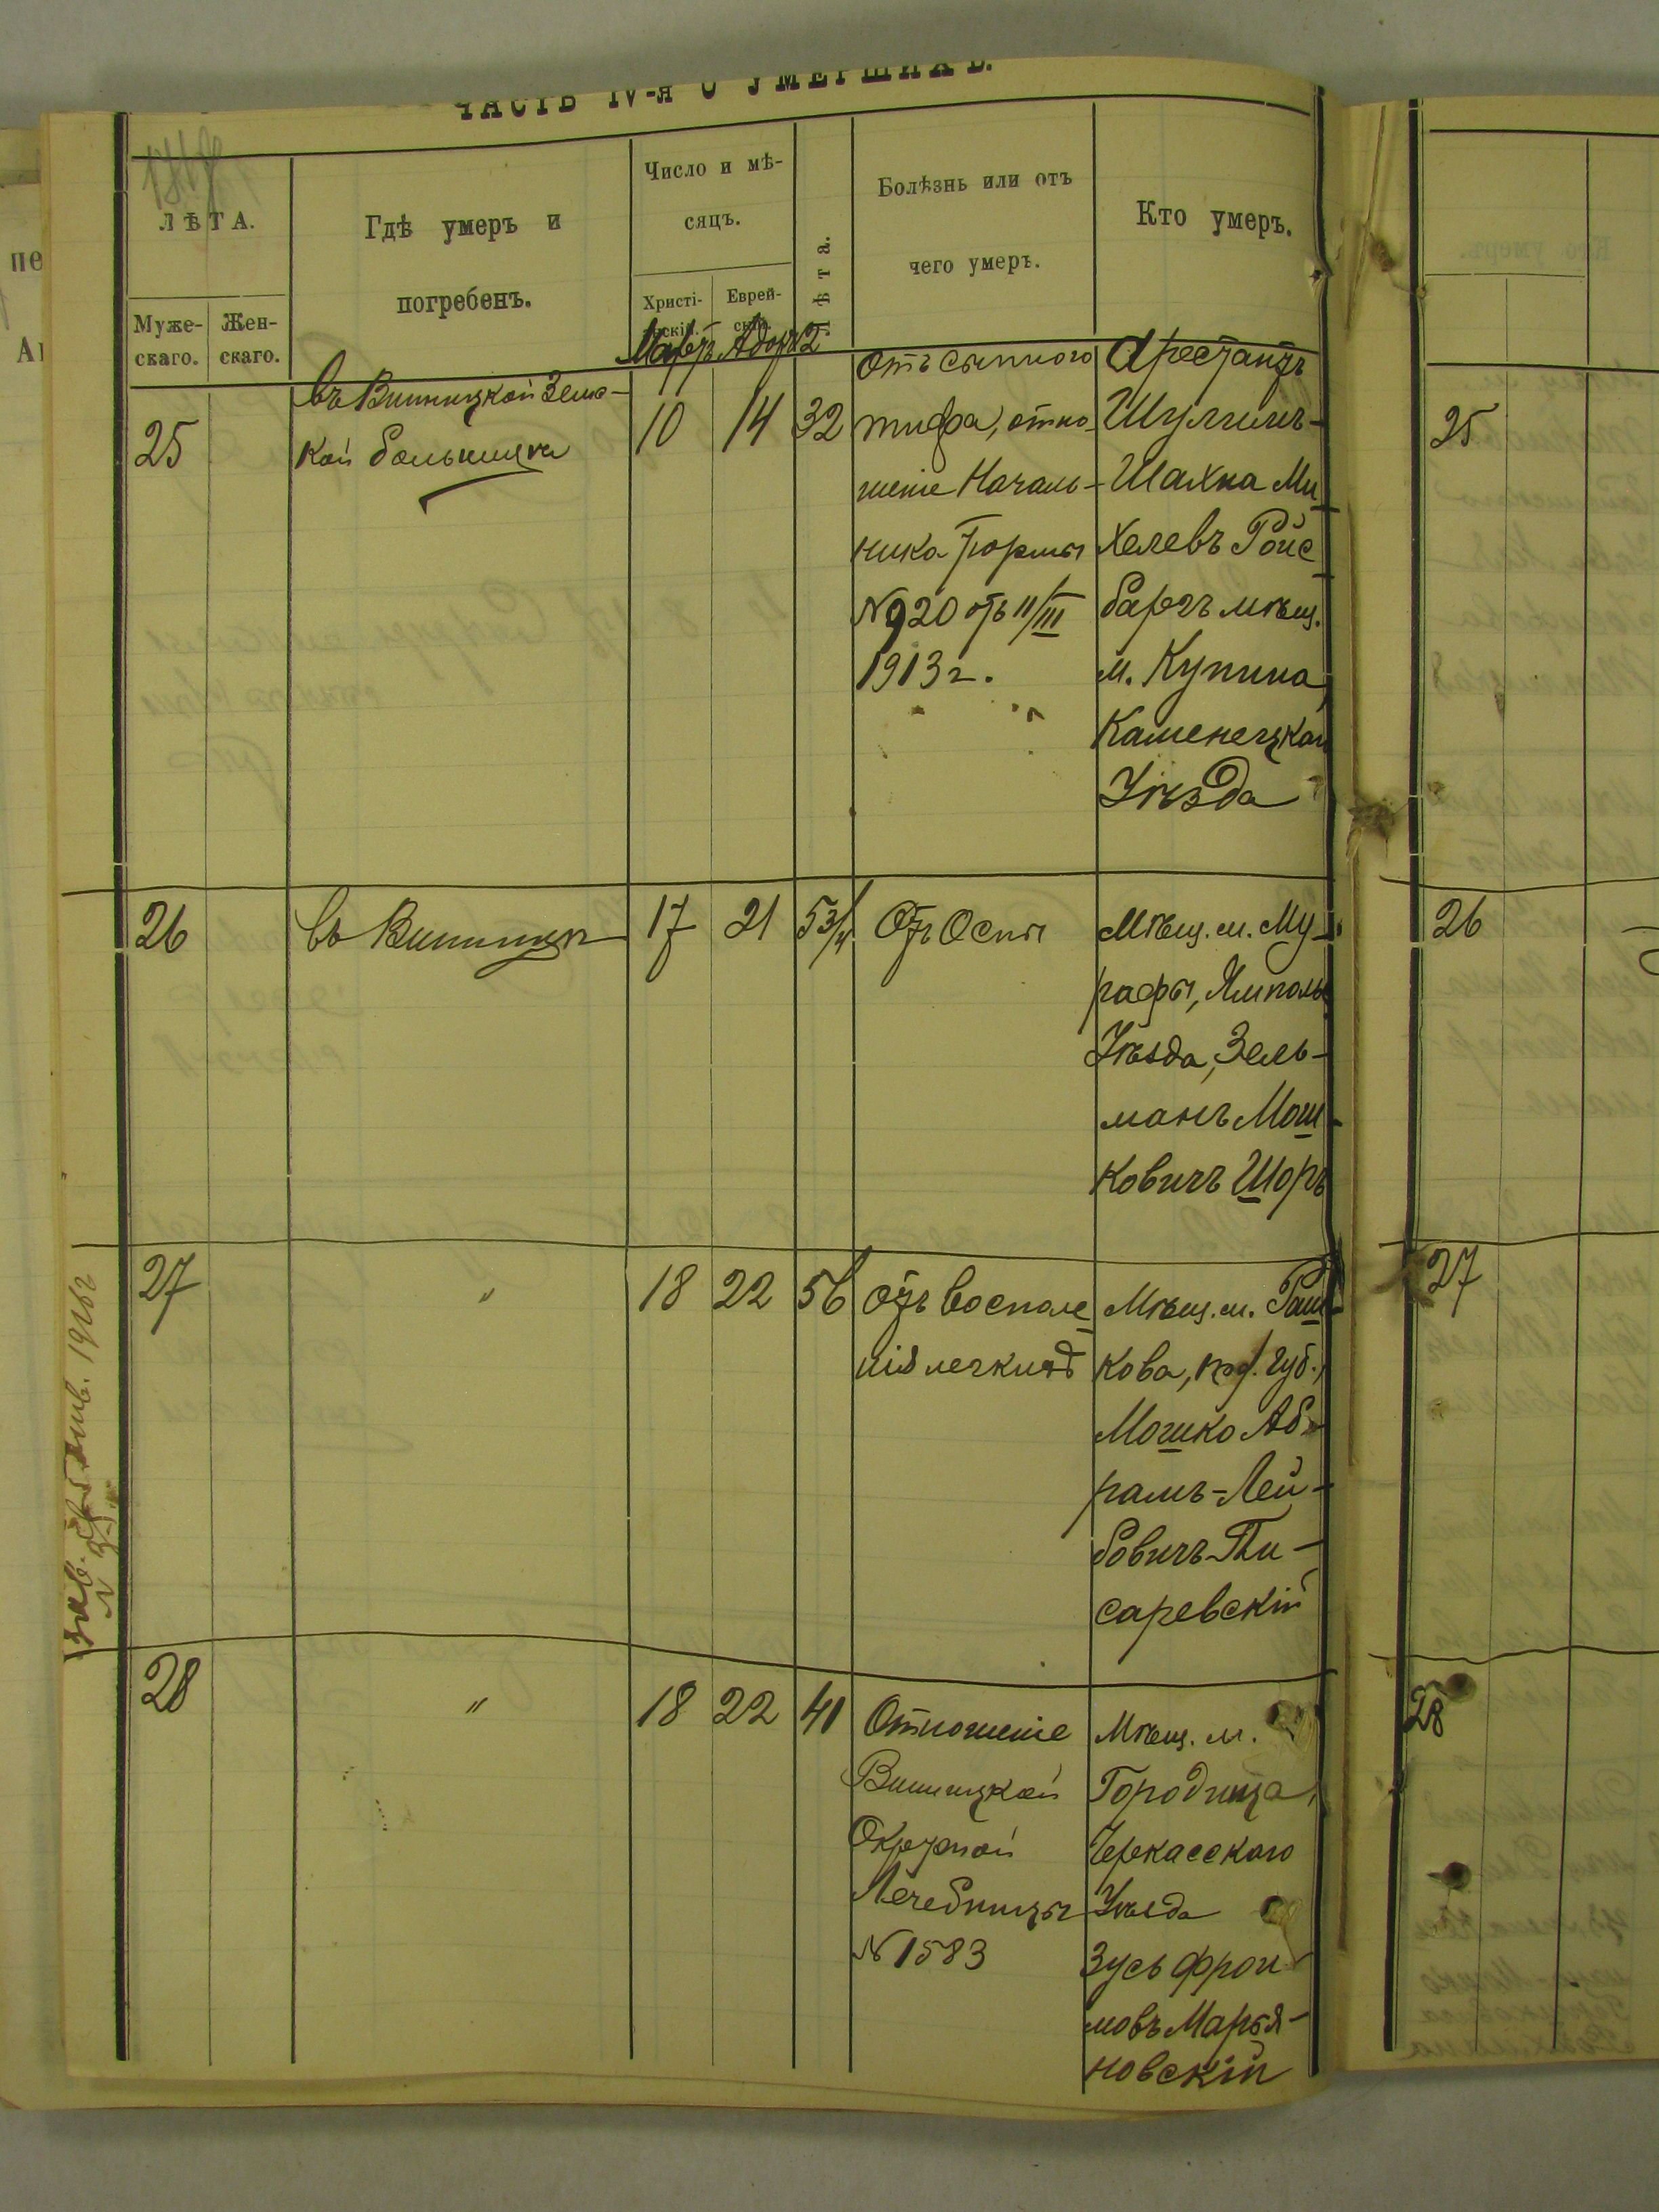 ЧАСТЬ IV-я О УМЕРШИХЪ.
ЛѢТА.
Муже-
скаго.
Жен-
скаго.
Гдѣ умеръ и
погребенъ.
Число и мѣ-
сяцъ.
Христі-
Еврей-
Лѣта.
Болѣзнь или отъ
чего умеръ.
Кто умеръ.
Мартъ Адоръ 2
25
въ Винницкой Земс-
кой больницѣ
10 14 32
Отъ сыпного
тифа, отно-
шеніе Началь-
ника Тюрьмы
№920 отъ 11/III
1913 г.
Арестантъ
Шулимъ-
Шахна Ми
хелевъ Ройс
баргъ мѣщ.
м. Купина,
Каменецкой
Уѣзда
26
въ Винницѣ
17 21 5 3/4
Отъ Оспы
Мѣщ. м. Му-
рафы, Ямполь
Уѣзда, Зель-
манъ Мош-
ковичъ Шоръ
27
"
18 22 56
отъ воспале
нія легкихъ
Мѣщ. м. Раш
кова, под. губ.,
Мошко Аб-
рамъ-Лей-
бовичъ Пи-
саревскій
28
"
18 22 41
Отношеніе
Винницкой
Окружной
Лечебницы
№ 1583
Мѣщ. м.
Городища,
Черкасского
Уѣзда
Зусь Фрои
мовъ Марья-
новскій
25
26
27
28